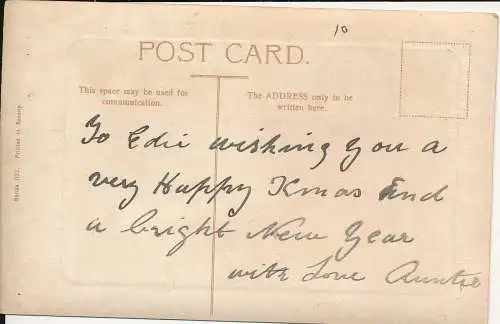 10
POST CARD.
This space may be used for
communication.
The ADDRESS only to be
written here.
To Edie wishing you a
very Happy Xmas and
a bright New Year
with Love Auntie
Printed in Saxony.